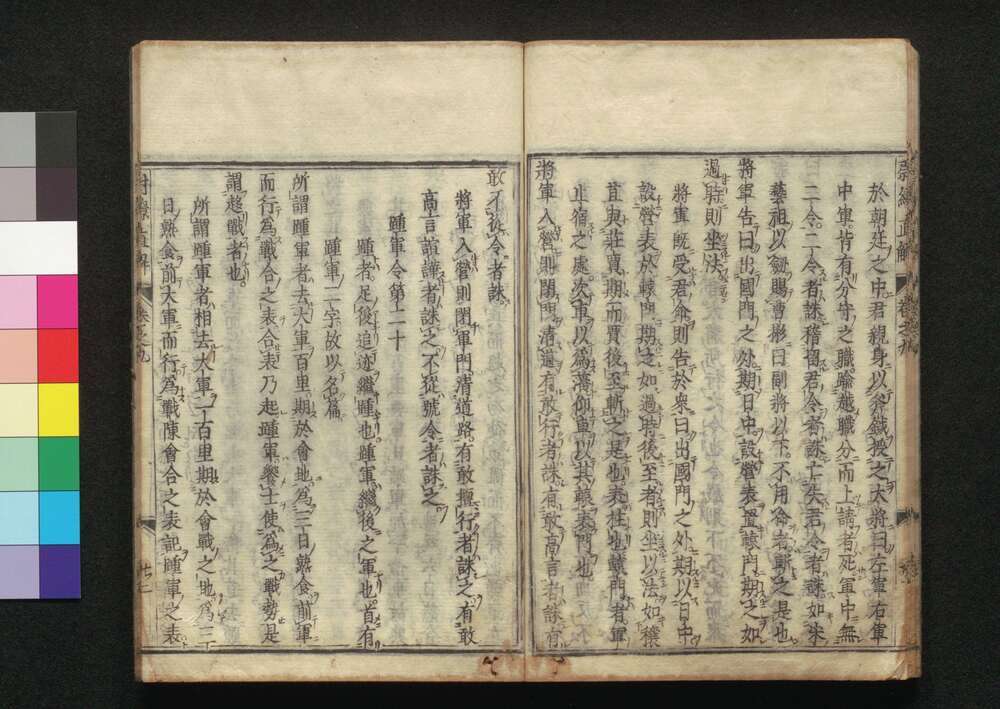 於朝廷之中君親身以斧鉞授之大將曰左軍右軍
中軍皆有分守之職踰越職分而上請者死軍中無
二令二令者誅稽留君令者誅亡失君令者誅如宋
藝祖以劒賜曹彬曰副將以下不用命者斬之是也
將軍告曰出國門之外期日中設營表置轅門期之如
過時則坐法
將軍既受君命則告於衆曰出國門之外期以日中
設營表於轅門期之如過時後至者則坐以法如穰
苴與莊賈期而賈後至斬之是也表柱也轅門者軍
止宿之處次車以為藩仰車以其轅表門也
將軍入營則閉門清道有敢行者誅有敢高言者誅有
敢不從令者誅
將軍入營則閉軍門清道路有敢擅行者誅之有敢
高言諠譁者誅之不從號令者誅之
踵軍令第二十
踵者足後追迹繼踵也踵軍繼後之軍也首有
踵軍二字故以名篇
所謂踵軍者去大軍百里期於會地為三日熟食前軍
而行為戰合之表合表乃起踵軍饗士使為之戰勢是
謂趨戰者也
所謂踵軍者相去大軍一百里期於會戰之地為三
日熟食前大軍而行為戰陳會合之表記踵軍之表